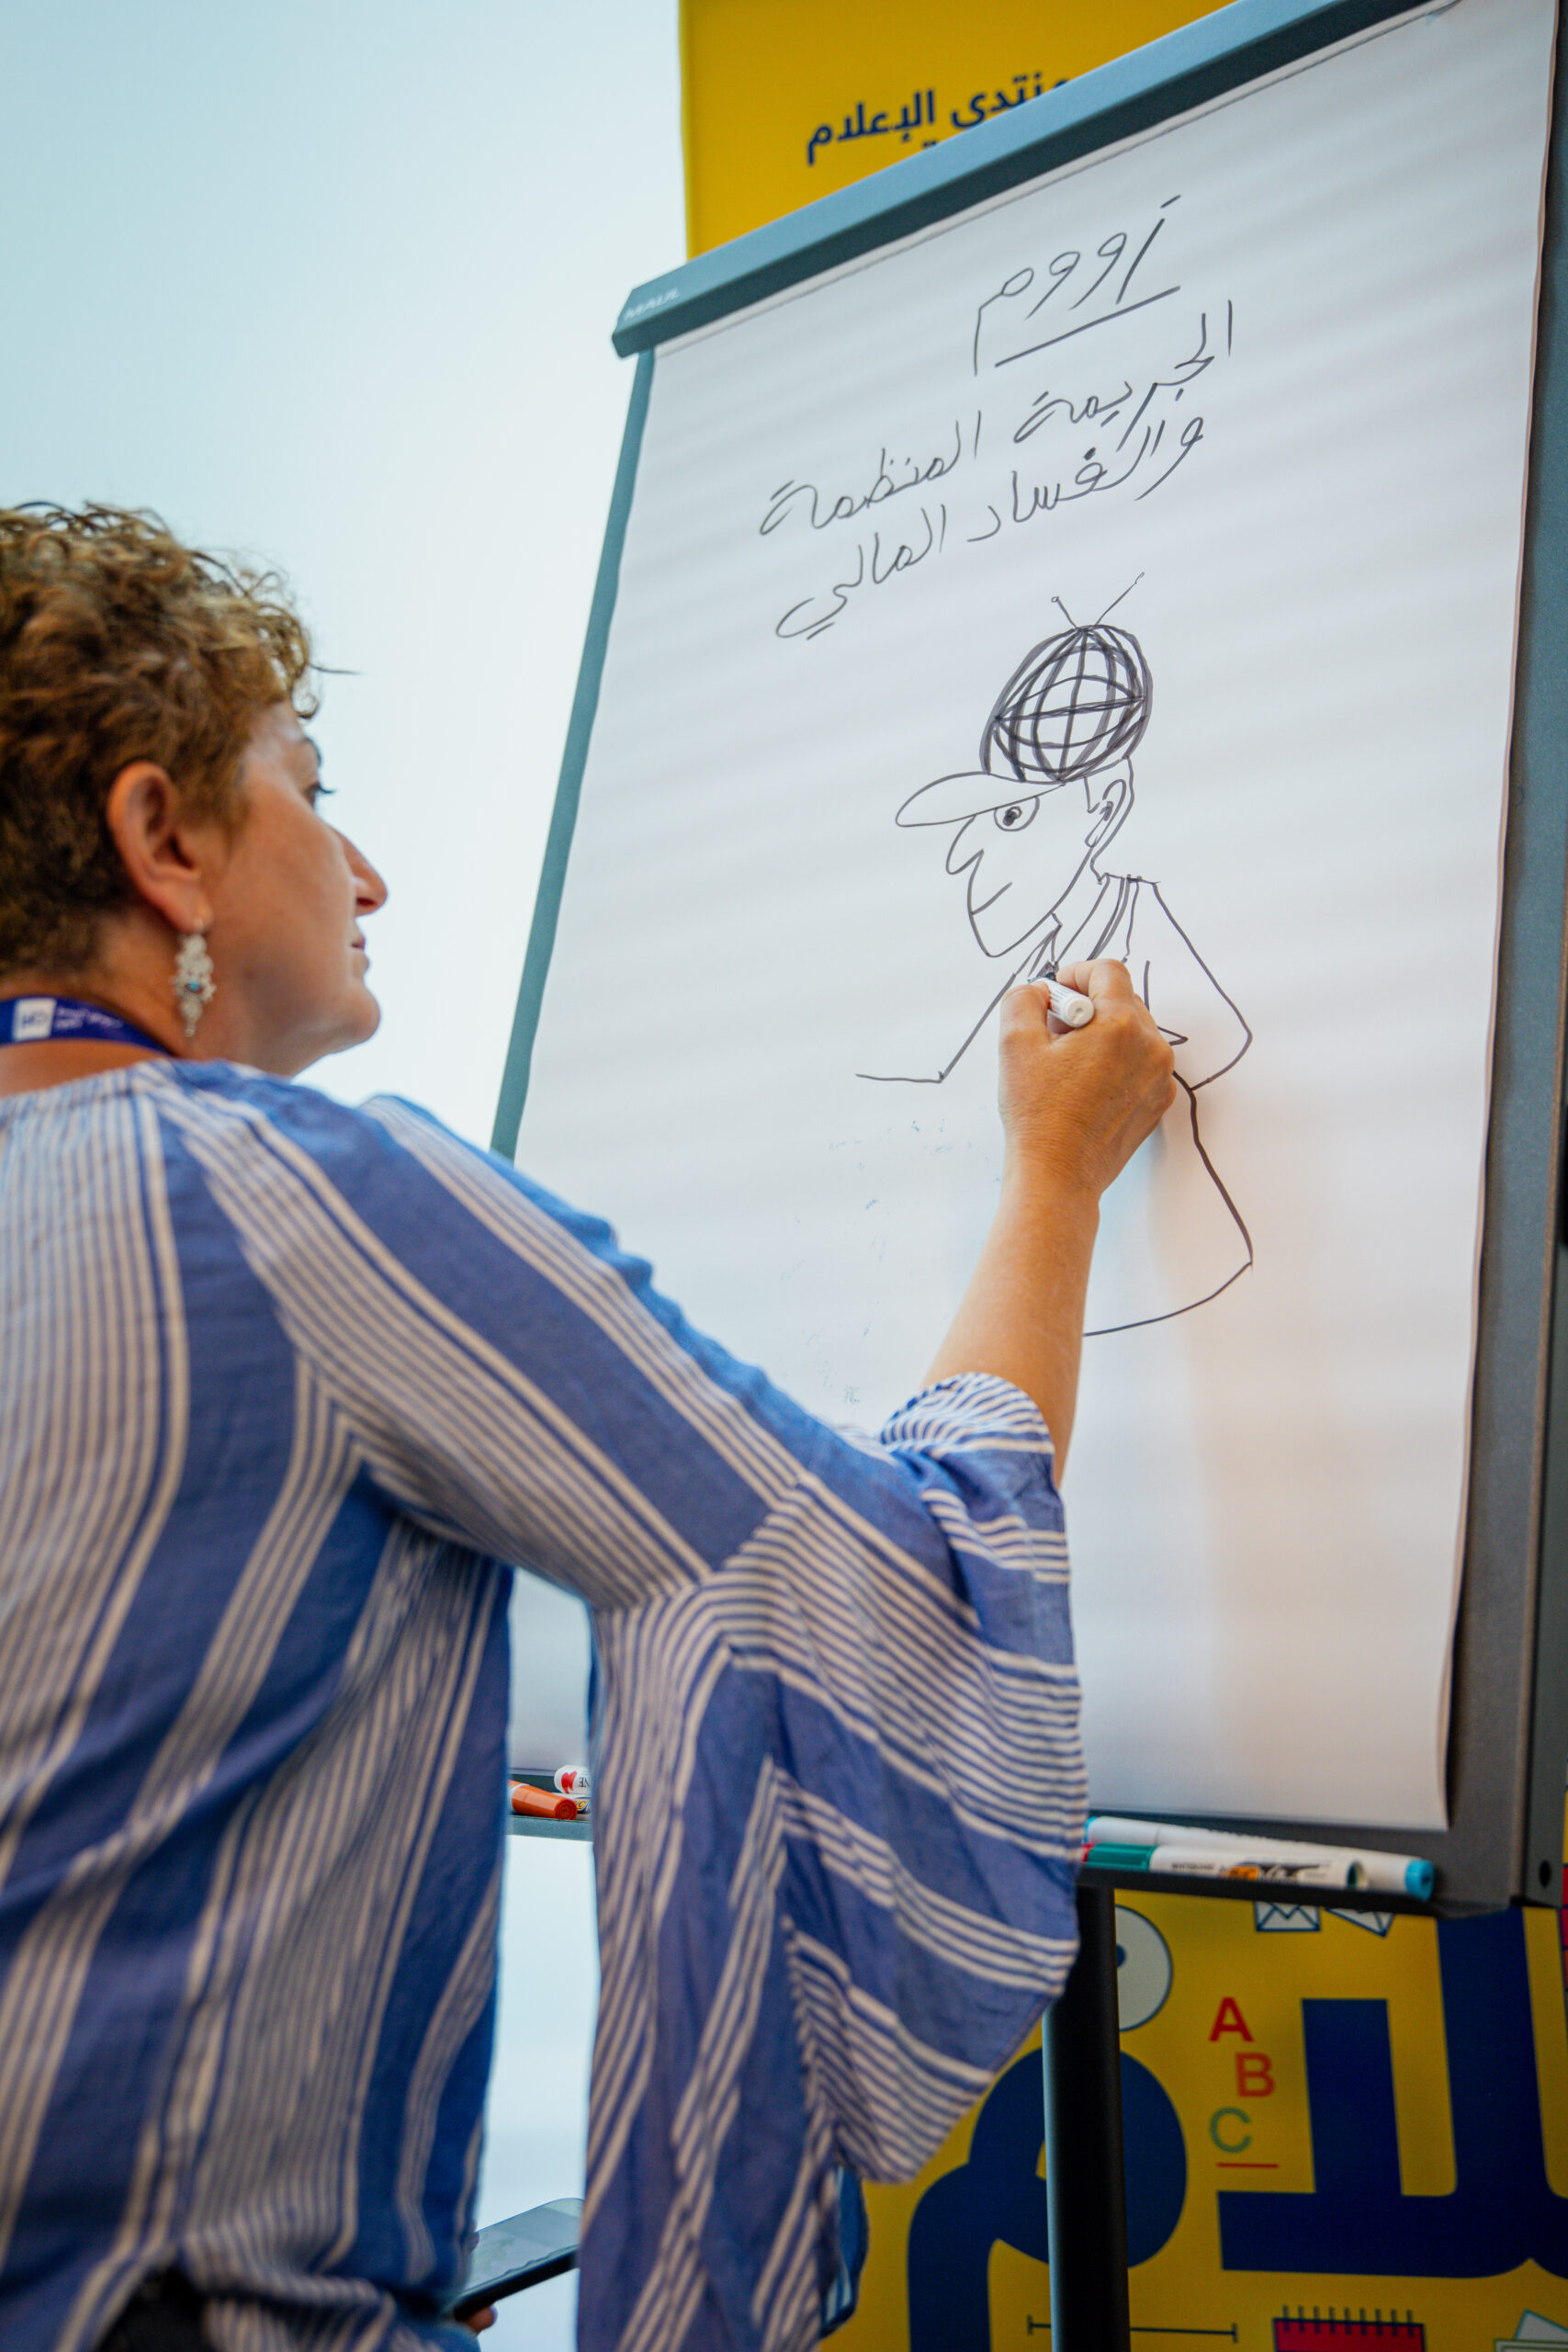 منتدى الإعلام
MAUL
زووم
الجريمة المنظمة
والفساد المالي
A
B
C